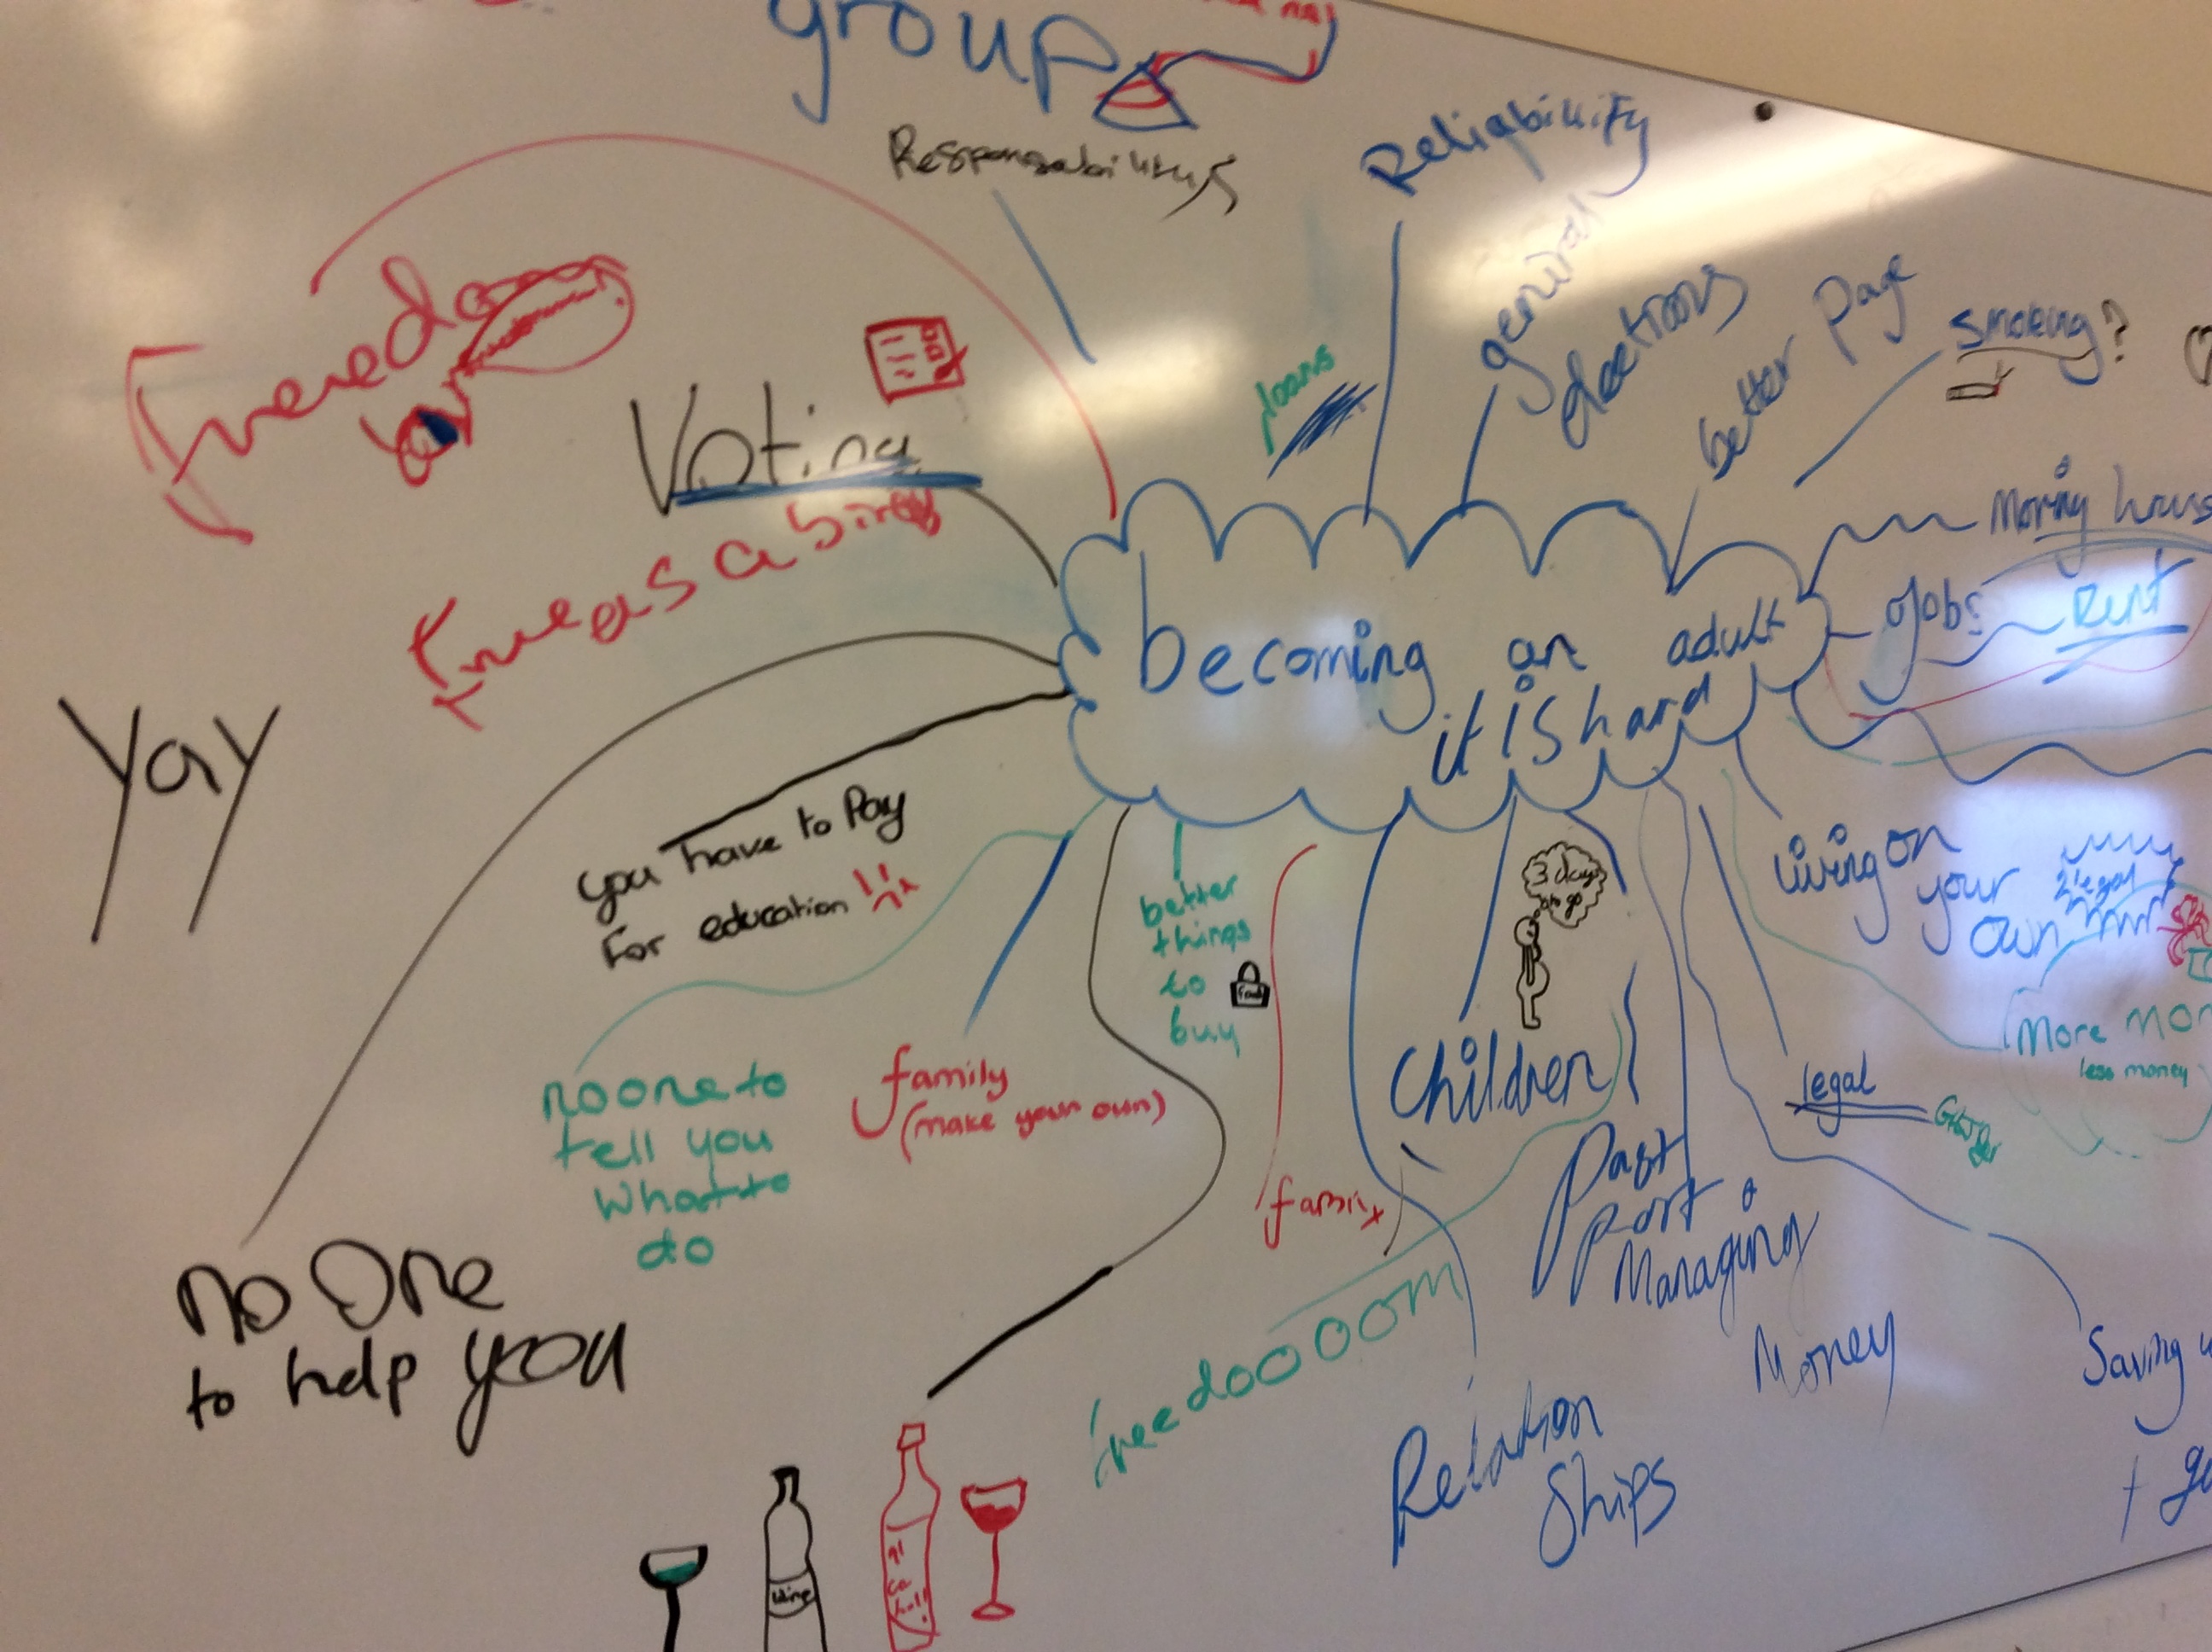 group
Responsabilitys
Reliability
geniral
elections
better Page
Smoking?
loans
Freedom
Voting
Free as a bird
Yay
becoming an adult
it is hard
Jobs
Rent
you have to Pay
For education
Living on
your
own
3 days
to go
better
things
to
buy
Food
More
less money
Children
legal
no one to
tell you
What to
do
family
(make your own)
family
Past
Port
Managing
Money
no One
to help you
freedooooom
Relation
Ships
Saving
+
Wine